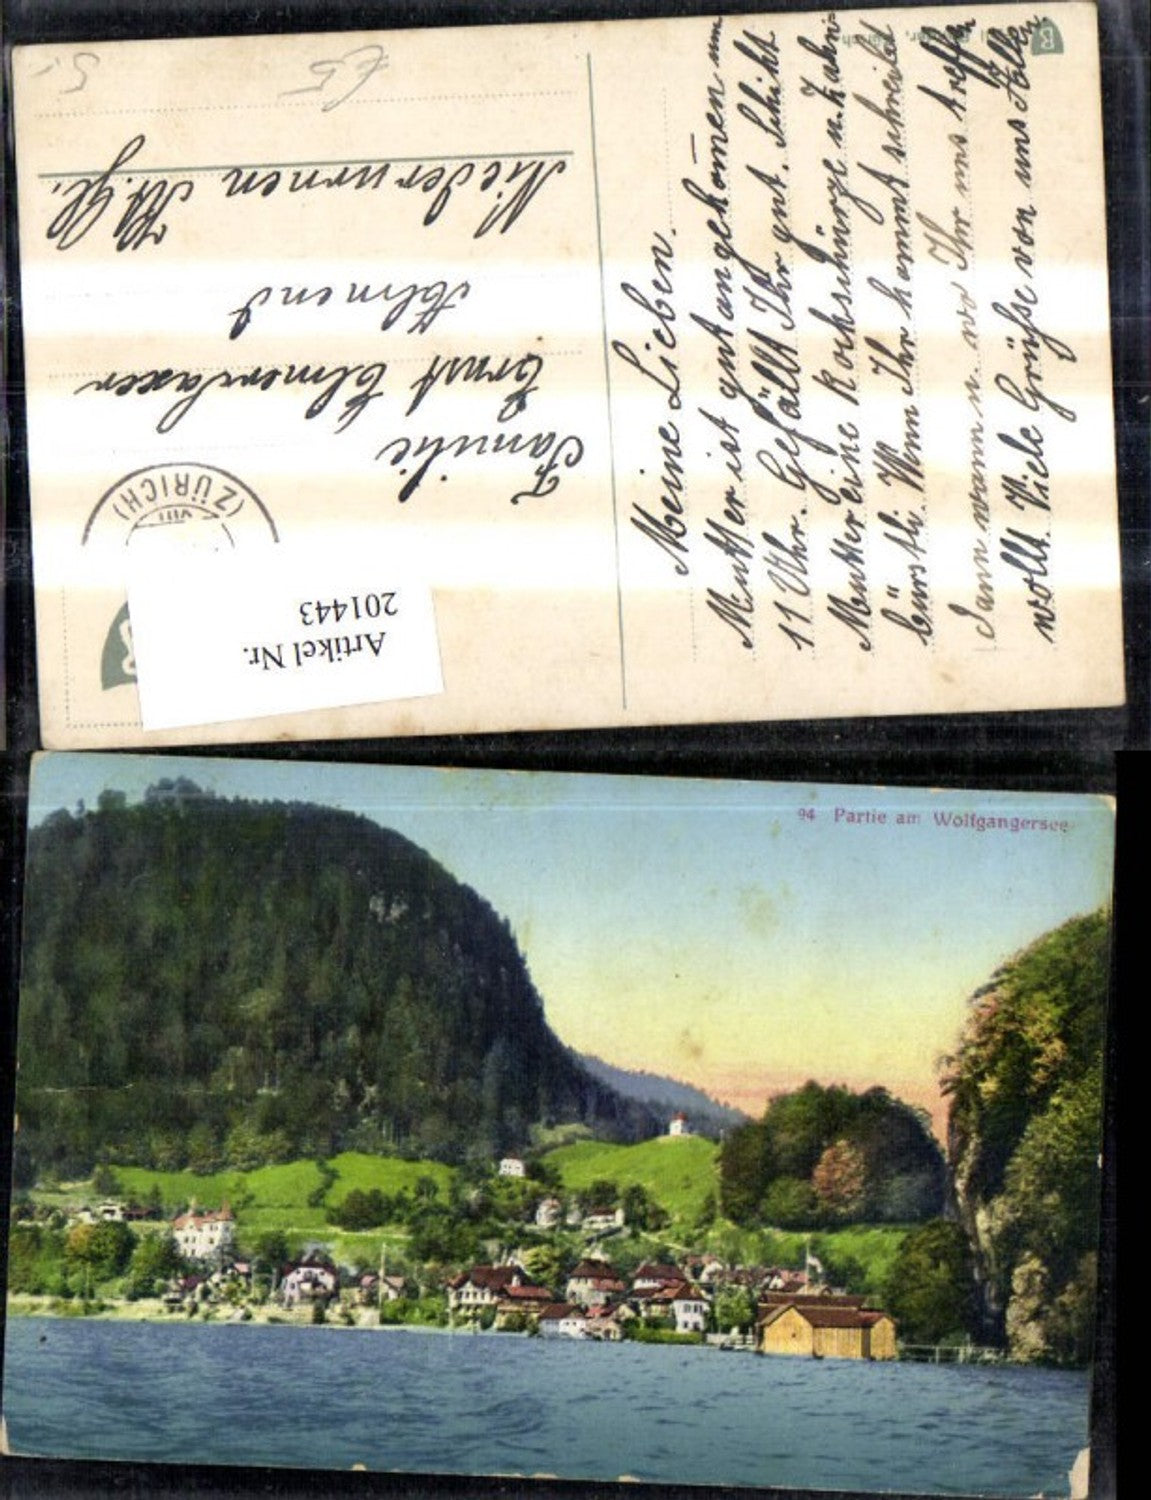 Meine Lieben.
Mutter ist gut angekommen um
11 Uhr. Gefällt Ihr gut. Schikt
Mutter eine Kochschürze u. Zahn
bürstli. Wenn Ihr kommt schreibt
dann wann u. wo Ihr uns treffen
wollt Viele Grüsse von uns Allen
Familie
Ernst
Allmend
Niederurnen Kt. Gl.
(ZÜRICH)
VIII
Artikel Nr.
201443
94 Partie am Wolfgangersee